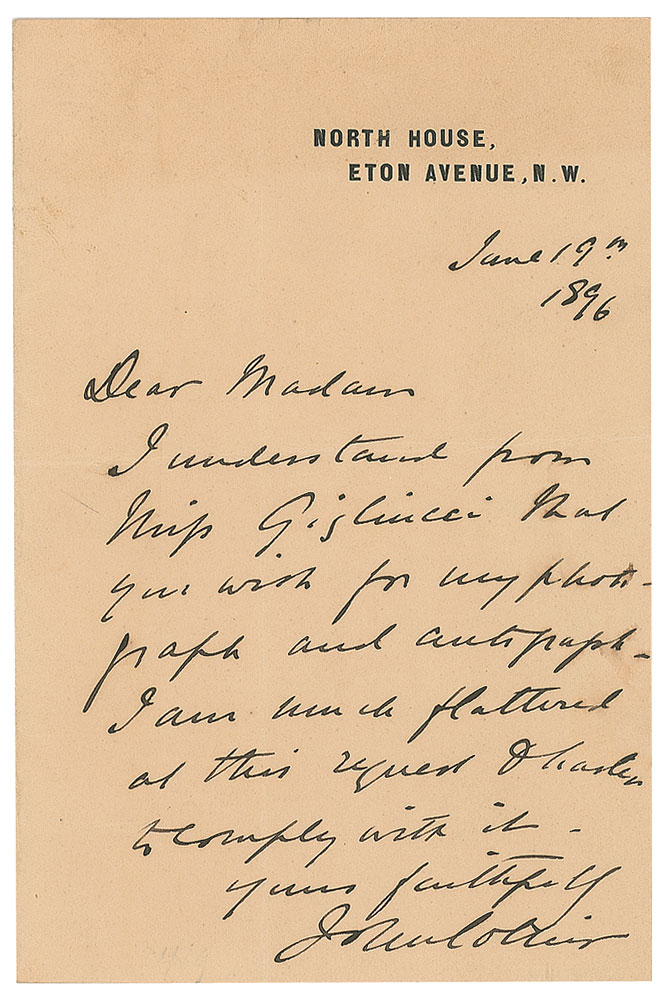 NORTH HOUSE,
ETON AVENUE, N.W.
June 19th
1896
Dear Madam
I understand from
Miss Gigliucci that
you wish for my photo-
graph and autograph-
I am much flattered
at this request & hasten
to comply with it -
Yours faithfully
John Collier